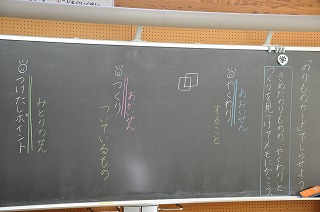 「のりものカード」でしらせよう
きめたのりものの、やくわりと
つくりを見つけてメモにかこう。
やくわり
あおいせん
すること
つくり
あかいせん
ついているもの
つけたしポイント
みどりのせん